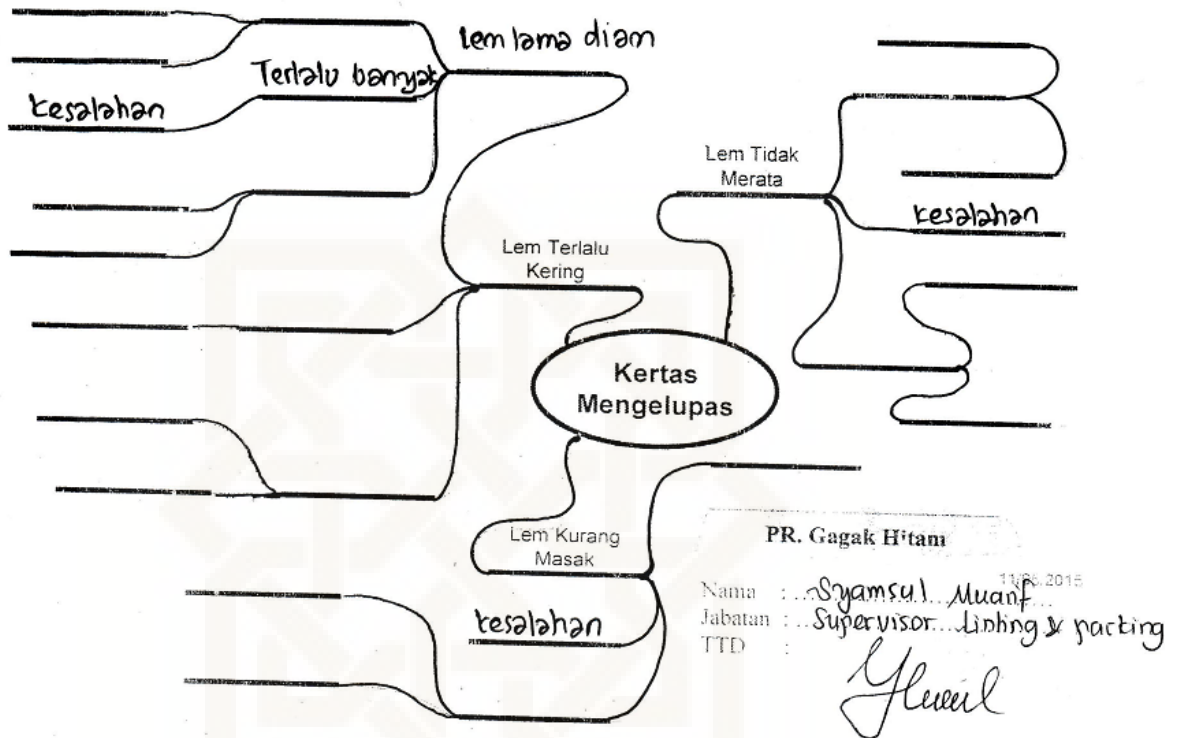 lem lama diam
Terlalu banyak
kesalahan
Lem Tidak
Merata
kesalahan
Lem Terlalu
Kering
Kertas
Mengelupas
Lem Kurang
Masak
kesalahan
PR. Gagak Hitam
Nama : Syamsul Muanf
Jabatan : Supervisor Linting & packing
TTD :